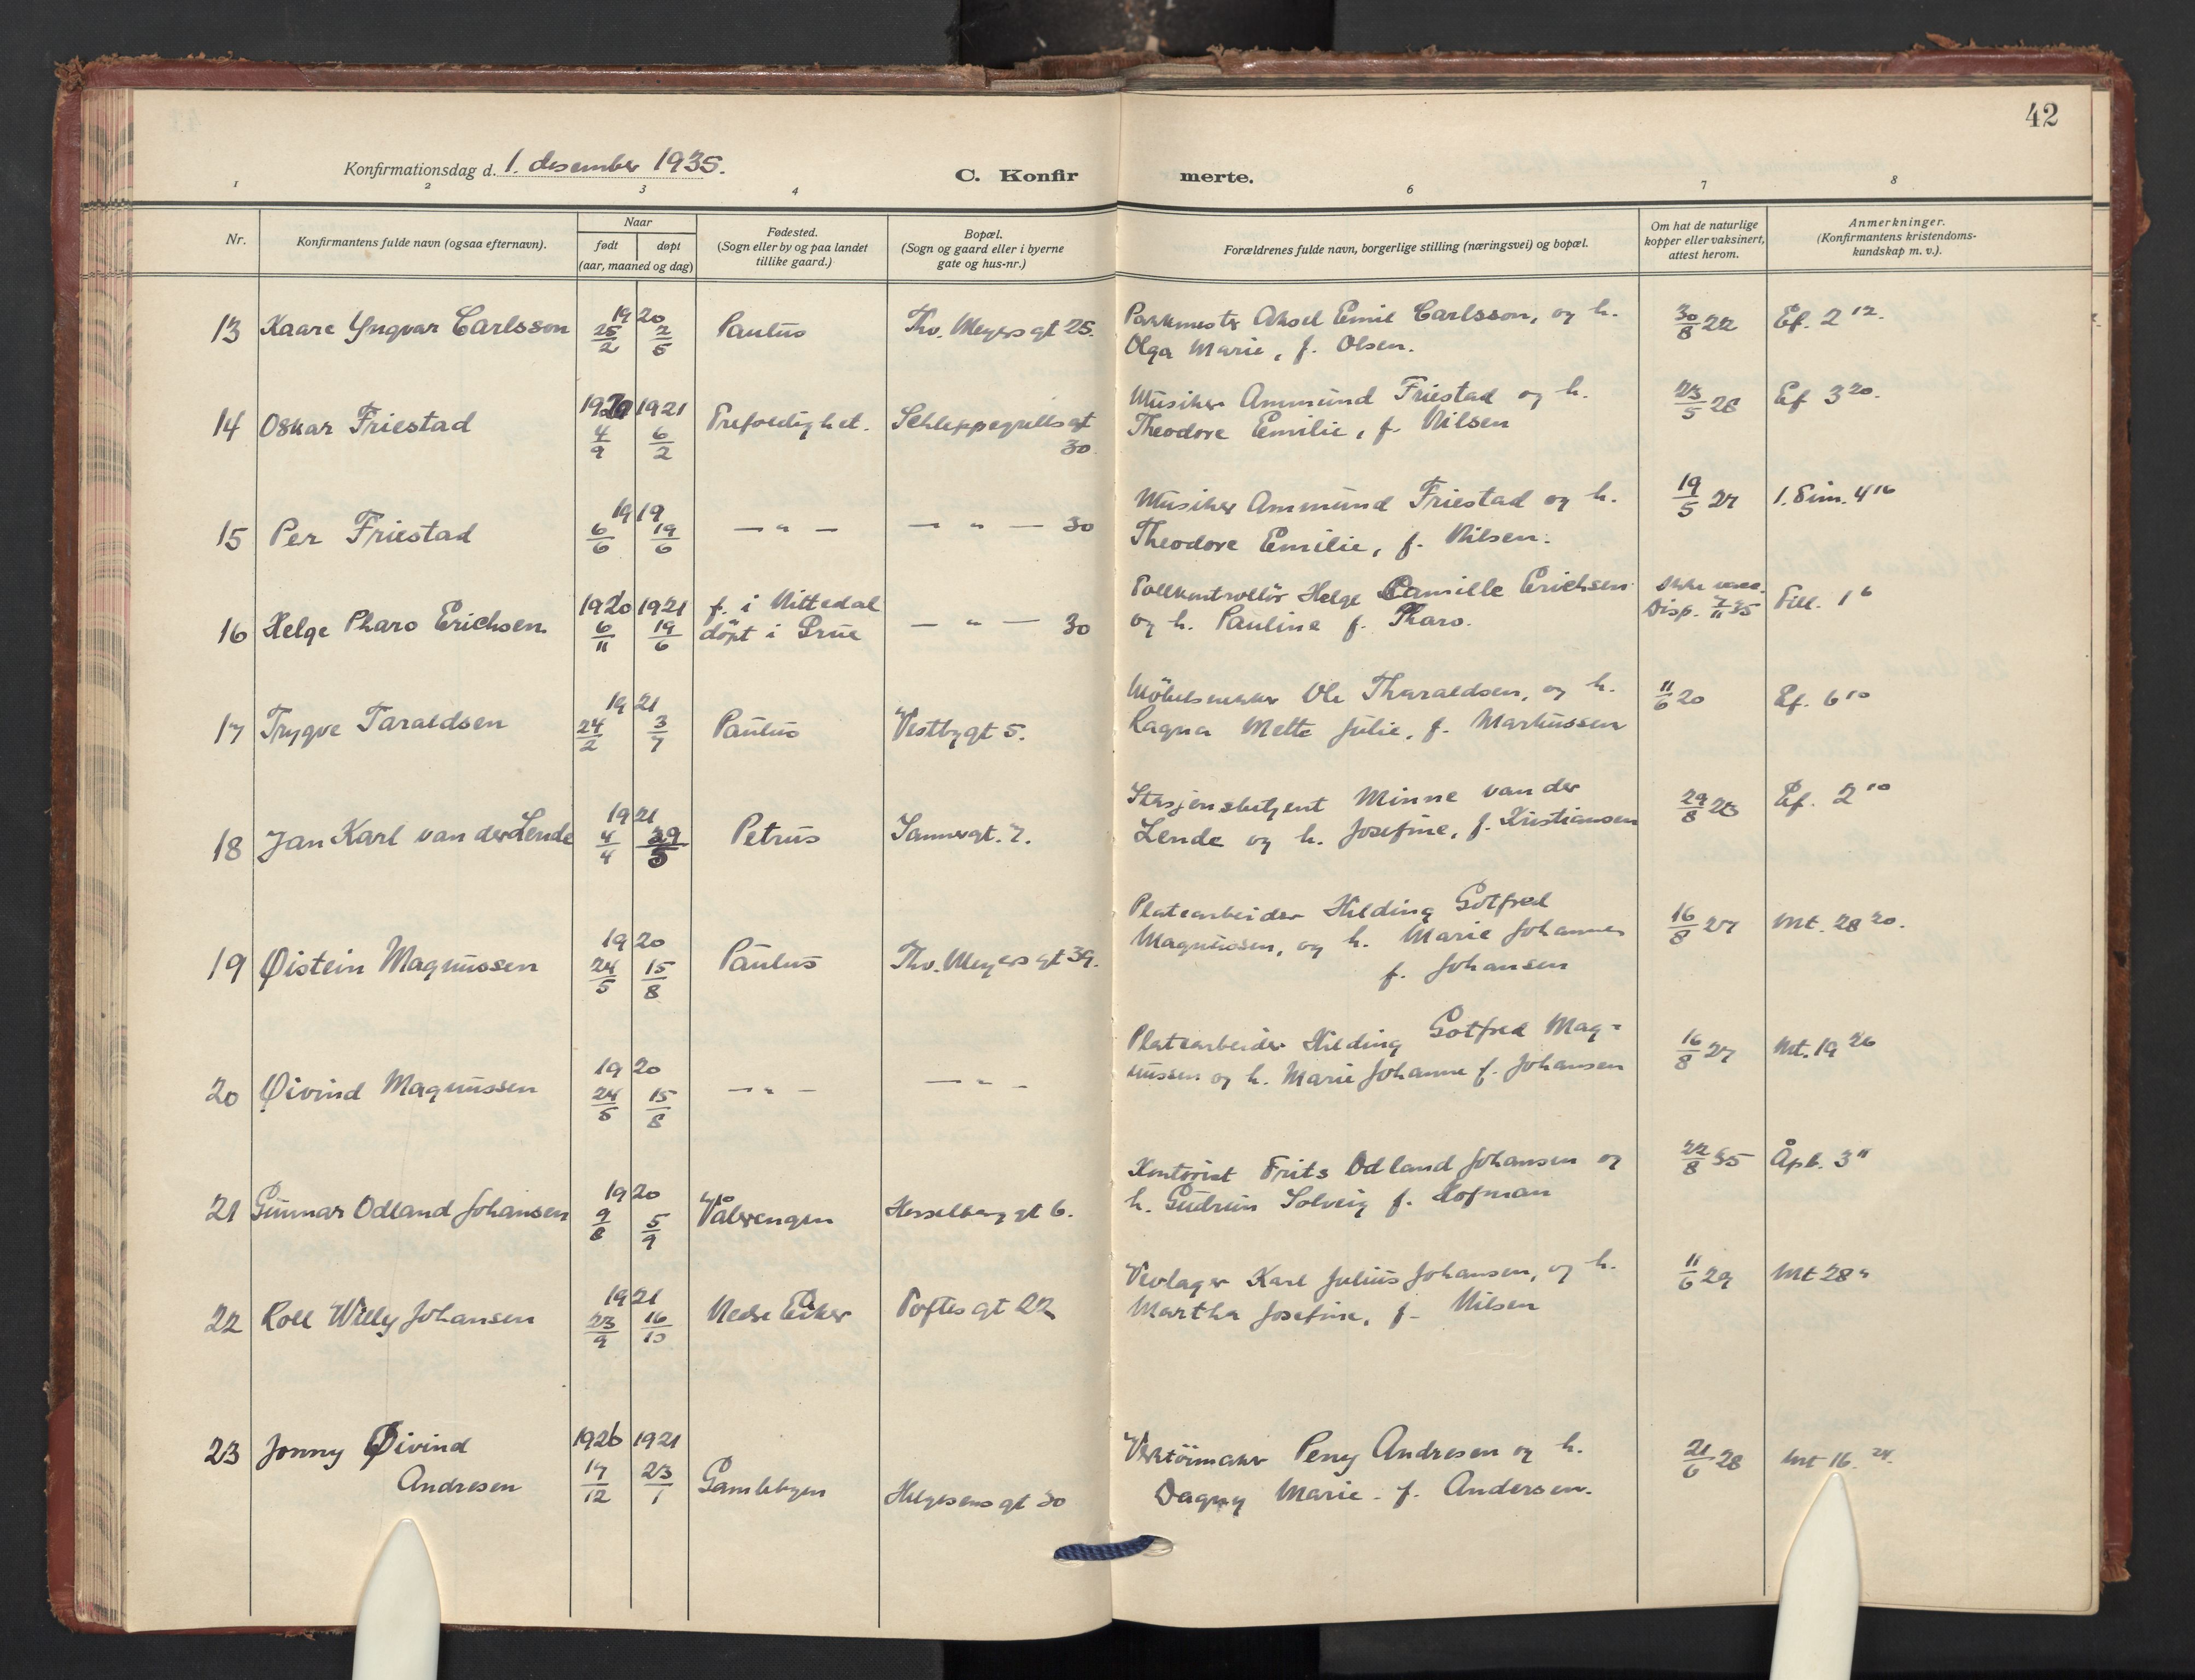 42
Konfirmationsdag d. 1. desember 1935.
C. Konfirmerte.
1 2 3 4 6 7 8
Nr.
Konfirmantens fulde navn (ogsaa efternavn).
Naar
født døpt
(aar, maaned og dag)
Fødested.
(Sogn eller by og paa landet
tillike gaard.)
Bopæl.
(Sogn og gaard eller i byerne
gate og hus-nr.)
Forældrenes fulde navn, borgerlige stilling (næringsvei) og bopæl.
Om hat de naturlige
kopper eller vaksinert,
attest herom.
Anmerkninger.
(Konfirmantens kristendoms-
kundskap m. v.).
13 Kaare Yngvar Carlsson 1920 25/2 2/5 Paulus Thv. Meyersgt 25. Aksel Emil Carlsson, og h. 30/8 22 Ef. 2 12.
Olga Marie, f. Olsen.
14 Oskar Friestad 1920 4/9 1921 6/2 Trefoldighet. Schleppegrellsgt 30. Musiker Ammund Friestad og h. 23/5 28 Ef 3 20.
Theodore Emilie, f. Nilsen
15 Per Friestad 1919 6/6 19/6 — " — — " — 30 Musiker Ammund Friestad og h. 19/5 27 1. Tim. 4 16
Theodore Emilie, f. Nilsen.
16 Helge Pharo Erichsen 1920 6/11 1921 19/6 f. i Nittedal døpt i Grue — " — 30 Tollkontrollör Helge Camille Erichsen Ikke vacc. Disp. 7/11 35 Fill. 1 6
og h. Pauline f. Pharo.
17 Trygve Taraldsen 1921 24/2 3/7 Paulus Vestbygt 5. Möbelsnekker Ole Tharaldsen, og h. 11/6 20 Ef. 6 10
Ragna Mette Julie, f. Markussen
18 Jan Karl van der Lende 1921 4/4 29/5 Petrus Sannergt. 7. Stasjonsbetjent Minne van der 29/8 28 Ef. 2 10
Lende og h. Josefine, f. Kristiansen
19 Øistein Magnussen 1920 24/5 15/8 Paulus Thv. Meyersgt 39. Platearbeider Hilding Gotfred 16/8 27 Mt. 28 20.
Magnussen, og h. Marie Johanne
f. Johansen
20 Øivind Magnussen 1920 24/5 15/8 — " — — " — Platearbeider Hilding Gotfred Mag- 16/8 27 Mt. 19 26
nussen og h. Marie Johanne f. Johansen
21 Gunnar Odland Johansen 1920 9/8 5/9 Vålerengen Hesselberggt 6. Kontorist Frits Odland Johansen og 22/8 35 Åpb. 3 11
h. Gudrun Solveig f. Hofman
22 Rolf Willy Johansen 1921 23/9 16/10 Nedre Eiker Toftesgt 22 Karl Julius Johansen, og h. 11/6 29 Mt 28
Martha Josefine, f. Nilsen
23 Jonny Øivind 1920 17/12 1921 23/1 Gamlebyen Helgesensgt 30 Verktöimaker Peny Andresen og h. 21/6 28 Mt 16. 24.
Andresen Dagny Marie. f. Andersen.